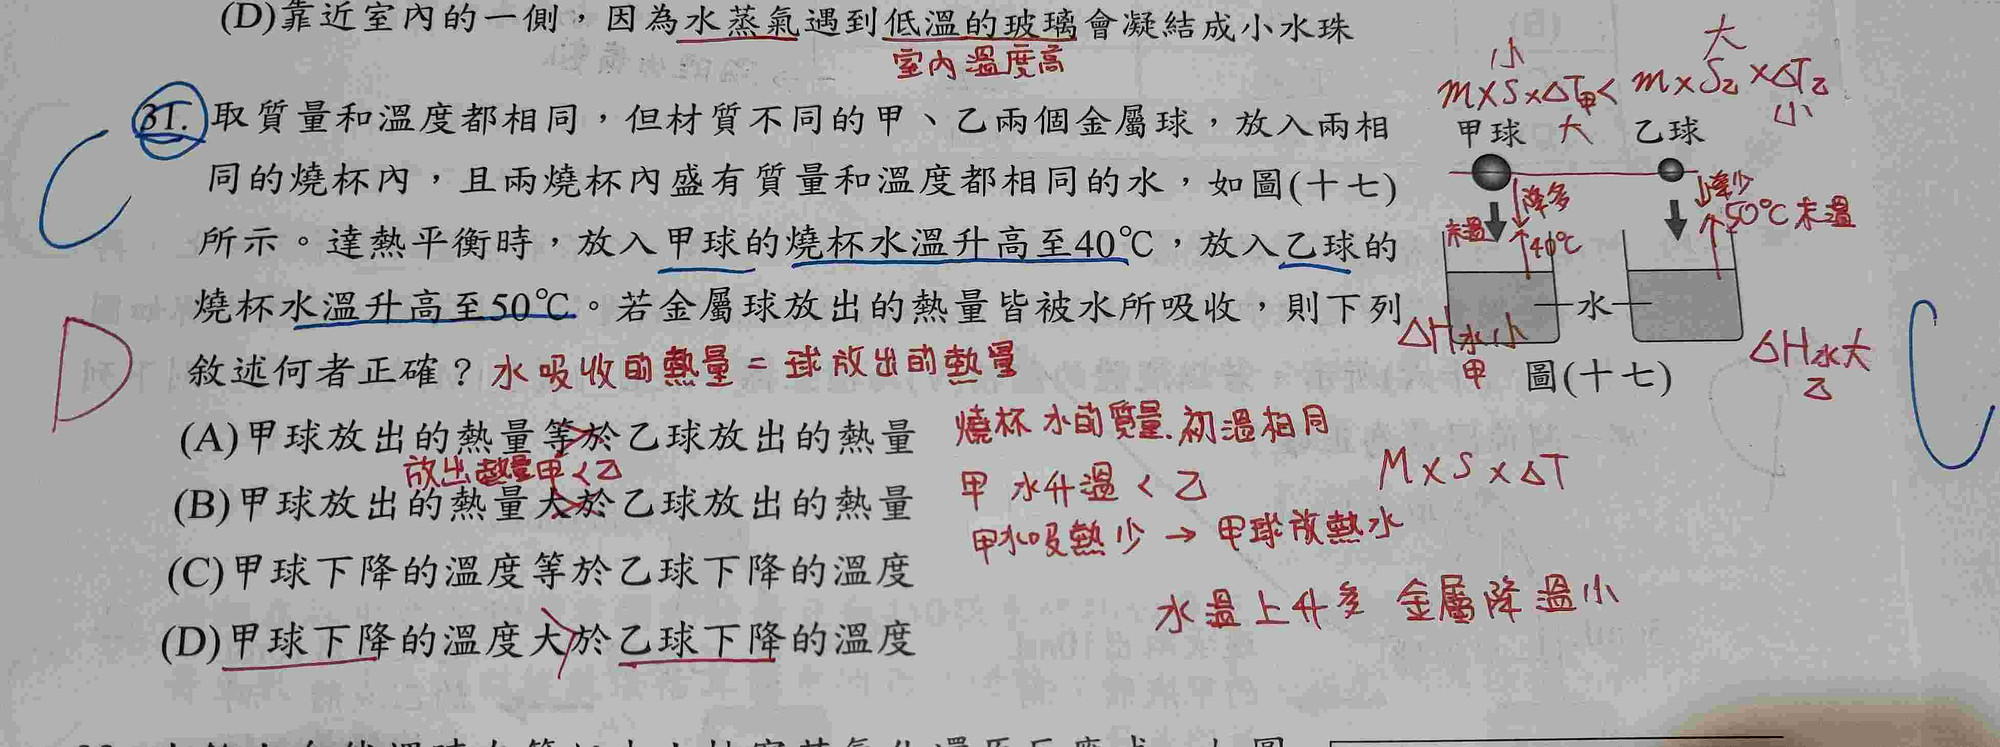 (D)靠近室內的一側，因為水蒸氣遇到低溫的玻璃會凝結成小水珠
室內溫度高
31.取質量和溫度都相同，但材質不同的甲、乙兩個金屬球，放入兩相
同的燒杯內，且兩燒杯內盛有質量和溫度都相同的水，如圖(十七)
所示。達熱平衡時，放入甲球的燒杯水溫升高至40℃，放入乙球的
燒杯水溫升高至50℃。若金屬球放出的熱量皆被水所吸收，則下列
敘述何者正確？水吸收的熱量=球放出的熱量
(A)甲球放出的熱量等於乙球放出的熱量
放出熱量甲<乙
(B)甲球放出的熱量大於乙球放出的熱量
(C)甲球下降的溫度等於乙球下降的溫度
(D)甲球下降的溫度大於乙球下降的溫度
C
D
小
大
m×S×ΔT甲< m×S乙×ΔT乙
大
小
甲球
乙球
降多
降少
末溫
40℃
50℃末溫
水
ΔH水小
甲
ΔH水大
乙
圖(十七)
燒杯 水的質量.初溫相同
甲 水升溫<乙
M×S×ΔT
甲水吸熱少→甲球放熱水
水溫上升多 金屬降溫小